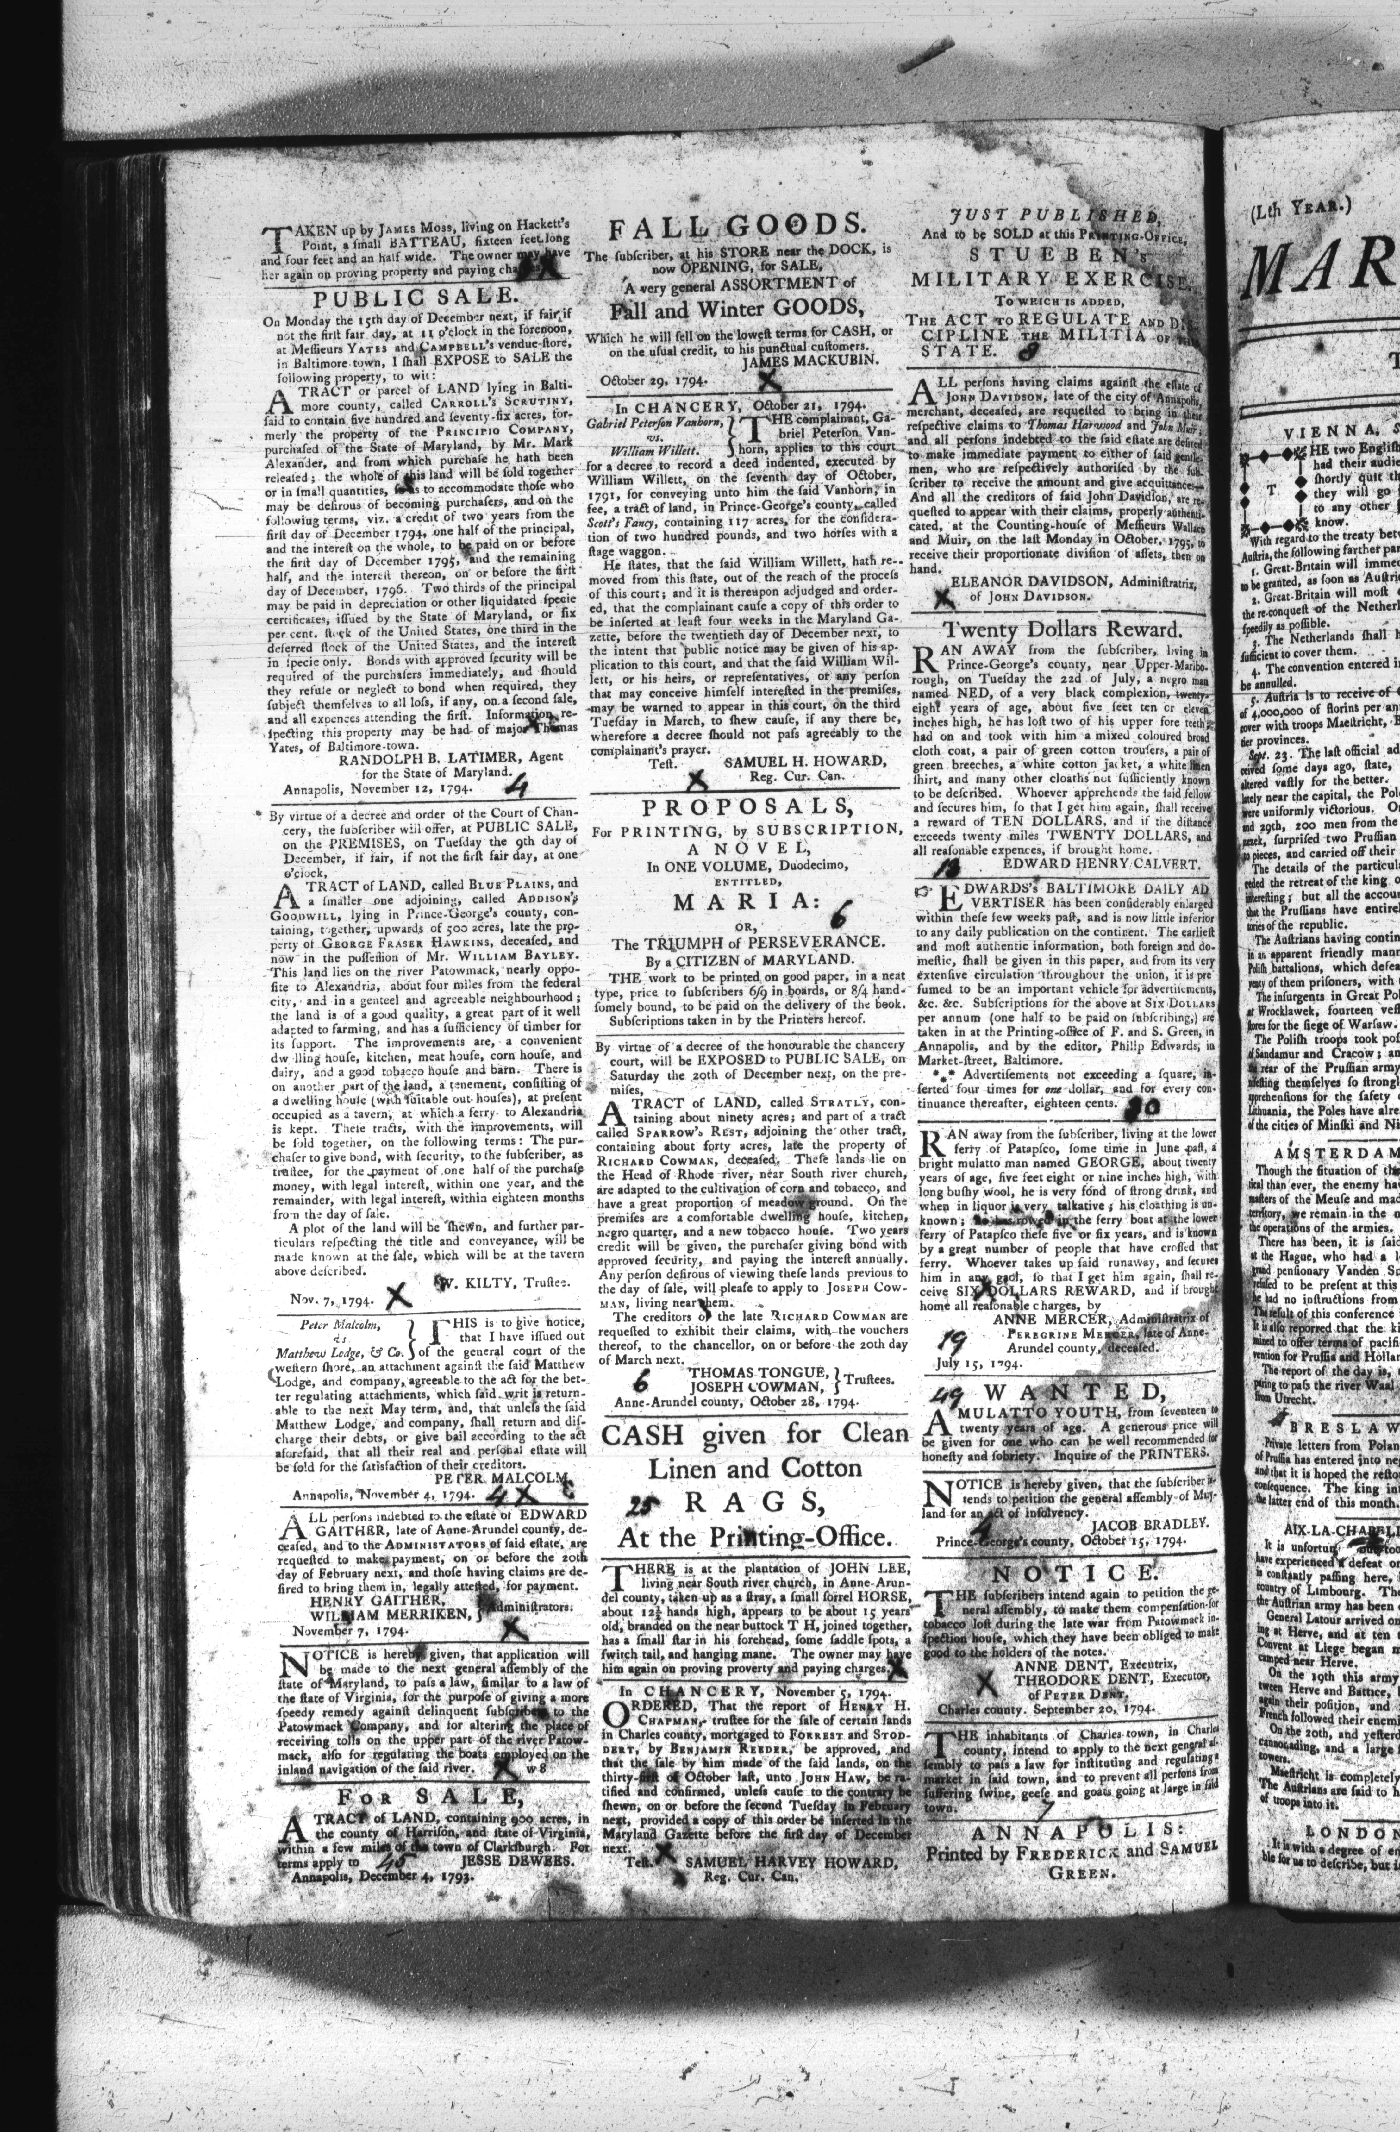 TAKEN up by JAMES MOSS, living on Hackett's
Point, a small BATTEAU, sixteen feet long
and four feet and an half wide. The owner may have
her again on proving property and paying
PUBLIC SALE.
On Monday the 15th day of December next, if fair, if
not the first fair day, at 11 o'clock in the forenoon,
at Messieurs YATES and CAMPBELL's vendue-store,
in Baltimore-town, I shall EXPOSE to SALE the
following property, to wit:
A TRACT or parcel of LAND lying in Balti-
more county, called CARROLL'S SCRUTINY,
said to contain five hundred and seventy-six acres, for-
merly the property of the PRINCIPIO COMPANY,
purchased of the State of Maryland, by Mr. Mark
Alexander, and from which purchase he hath been
released; the whole of this land will be sold together
or in small quantities, as to accommodate those who
may be desirous of becoming purchasers, and on the
following terms, viz. a credit of two years from the
first day of December 1794, one half of the principal,
and the interest on the whole, to be paid on or before
the first day of December 1795, and the remaining
half, and the interest thereon, on or before the first
day of December, 1796. Two thirds of the principal
may be paid in depreciation or other liquidated specie
certificates, issued by the State of Maryland, or six
per cent. stock of the United States, one third in the
deferred stock of the United States, and the interest
in specie only. Bonds with approved security will be
required of the purchasers immediately, and should
they refuse or neglect to bond when required, they
subject themselves to all loss, if any, on a second sale,
and all expences attending the first. Information re-
specting this property may be had of major Thomas
Yates, of Baltimore-town.
RANDOLPH B. LATIMER, Agent
for the State of Maryland.
Annapolis, November 12, 1794. 4
By virtue of a decree and order of the Court of Chan-
cery, the subscriber will offer, at PUBLIC SALE,
on the PREMISES, on Tuesday the 9th day of
December, if fair, if not the first fair day, at one
o'clock,
A TRACT of LAND, called BLUE PLAINS, and
a smaller one adjoining, called ADDISON'S
GOODWILL, lying in Prince-George's county, con-
taining, together, upwards of 500 acres, late the pro-
perty of GEORGE FRASER HAWKINS, deceased, and
now in the possession of Mr. WILLIAM BAYLEY.
This land lies on the river Patowmack, nearly oppo-
site to Alexandria, about four miles from the federal
city, and in a genteel and agreeable neighbourhood;
the land is of a good quality, a great part of it well
adapted to farming, and has a sufficiency of timber for
its support. The improvements are, a convenient
dwelling house, kitchen, meat house, corn house, and
dairy, and a good tobacco house and barn. There is
on another part of the land, a tenement, consisting of
a dwelling house (with suitable out houses), at present
occupied as a tavern, at which a ferry to Alexandria
is kept. These tracts, with the improvements, will
be sold together, on the following terms: The pur-
chaser to give bond, with security, to the subscriber, as
trustee, for the payment of one half of the purchase
money, with legal interest, within one year, and the
remainder, with legal interest, within eighteen months
from the day of sale.
A plot of the land will be shewn, and further par-
ticulars respecting the title and conveyance, will be
made known at the sale, which will be at the tavern
above described.
W. KILTY, Trustee.
Nov. 7, 1794. X
Peter Malcolm,
vs.
Matthew Lodge, & Co.
THIS is to give notice,
that I have issued out
of the general court of the
western shore, an attachment against the said Matthew
Lodge, and company, agreeable to the act for the bet-
ter regulating attachments, which said writ is return-
able to the next May term, and, that unless the said
Matthew Lodge, and company, shall return and dis-
charge their debts, or give bail according to the act
aforesaid, that all their real and personal estate will
be sold for the satisfaction of their creditors.
PETER MALCOLM.
Annapolis, November 4, 1794. 4 X
ALL persons indebted to the estate of EDWARD
GAITHER, late of Anne-Arundel county, de-
ceased, and to the ADMINISTATORS of said estate, are
requested to make payment, on or before the 20th
day of February next, and those having claims are de-
sired to bring them in, legally attested, for payment.
HENRY GAITHER,
WILLIAM MERRIKEN, } Administrators.
November 7, 1794. X
NOTICE is hereby given, that application will
be made to the next general assembly of the
state of Maryland, to pass a law, similar to a law of
the state of Virginia, for the purpose of giving a more
speedy remedy against delinquent subscribers to the
Patowmack Company, and for altering the place of
receiving tolls on the upper part of the river Patow-
mack, also for regulating the boats employed on the
inland navigation of the said river. X w8
FOR SALE,
A TRACT of LAND, containing 900 acres, in
the county of Harrison, and state of Virginia,
within a few miles of the town of Clarksburgh. For
terms apply to 45 JESSE DEWEES.
Annapolis, December 4, 1793.
FALL GOODS.
The subscriber, at his STORE near the DOCK, is
now OPENING, for SALE,
A very general ASSORTMENT of
Fall and Winter GOODS,
Which he will sell on the lowest terms for CASH, or
on the usual credit, to his punctual customers.
JAMES MACKUBIN.
October 29, 1794. X
In CHANCERY, October 21, 1794.
Gabriel Peterson Vanhorn,
vs.
William Willett.
THE complainant, Ga-
briel Peterson Van-
horn, applies to this court
for a decree to record a deed indented, executed by
William Willett, on the seventh day of October,
1791, for conveying unto him the said Vanhorn, in
fee, a tract of land, in Prince-George's county, called
Scott's Fancy, containing 117 acres, for the considera-
tion of two hundred pounds, and two horses with a
stage waggon.
He states, that the said William Willett, hath re-
moved from this state, out of the reach of the process
of this court; and it is thereupon adjudged and order-
ed, that the complainant cause a copy of this order to
be inserted at least four weeks in the Maryland Ga-
zette, before the twentieth day of December next, to
the intent that public notice may be given of his ap-
plication to this court, and that the said William Wil-
lett, or his heirs, or representatives, or any person
that may conceive himself interested in the premises,
may be warned to appear in this court, on the third
Tuesday in March, to shew cause, if any there be,
wherefore a decree should not pass agreeably to the
complainant's prayer.
Test. SAMUEL H. HOWARD,
X Reg. Cur. Can.
PROPOSALS,
For PRINTING, by SUBSCRIPTION,
A NOVEL,
In ONE VOLUME, Duodecimo,
ENTITLED,
MARIA: 6
OR,
The TRIUMPH of PERSEVERANCE.
By a CITIZEN of MARYLAND.
THE work to be printed on good paper, in a neat
type, price to subscribers 6/9 in boards, or 8/4 hand-
somely bound, to be paid on the delivery of the book.
Subscriptions taken in by the Printers hereof.
By virtue of a decree of the honourable the chancery
court, will be EXPOSED to PUBLIC SALE, on
Saturday the 20th of December next, on the pre-
mises,
A TRACT of LAND, called STRATLY, con-
taining about ninety acres; and part of a tract
called SPARROW'S REST, adjoining the other tract,
containing about forty acres, late the property of
RICHARD COWMAN, deceased. These lands lie on
the Head of Rhode river, near South river church,
are adapted to the cultivation of corn and tobacco, and
have a great proportion of meadow ground. On the
premises are a comfortable dwelling house, kitchen,
negro quarter, and a new tobacco house. Two years
credit will be given, the purchaser giving bond with
approved security, and paying the interest annually.
Any person desirous of viewing these lands previous to
the day of sale, will please to apply to JOSEPH COW-
MAN, living near them.
The creditors of the late RICHARD COWMAN are
requested to exhibit their claims, with the vouchers
thereof, to the chancellor, on or before the 20th day
of March next.
6 THOMAS TONGUE,
JOSEPH COWMAN, } Trustees.
Anne-Arundel county, October 28, 1794.
CASH given for Clean
Linen and Cotton
25 RAGS,
At the Printing-Office.
THERE is at the plantation of JOHN LEE,
living near South river church, in Anne-Arun-
del county, taken up as a stray, a small sorrel HORSE,
about 12½ hands high, appears to be about 15 years
old, branded on the near buttock T H, joined together,
has a small star in his forehead, some saddle spots, a
switch tail, and hanging mane. The owner may have
him again on proving proverty and paying charges. X
In CHANCERY, November 5, 1794.
ORDERED, That the report of HENRY H.
CHAPMAN, trustee for the sale of certain lands
in Charles county, mortgaged to FORREST and STOD-
DERT, by BENJAMIN REEDER, be approved, and
that the sale by him made of the said lands, on the
thirty-first of October last, unto JOHN HAW, be ra-
tified and confirmed, unless cause to the contrary be
shewn, on or before the second Tuesday in February
next, provided a copy of this order be inserted in the
Maryland Gazette before the first day of December
next.
Test. X SAMUEL HARVEY HOWARD,
Reg. Cur. Can.
JUST PUBLISHED,
And to be SOLD at this PRINTING-OFFICE,
STUEBEN's
MILITARY EXERCISE.
TO WHICH IS ADDED,
THE ACT TO REGULATE AND DIS-
CIPLINE THE MILITIA OF
STATE. 8
ALL persons having claims against the estate of
JOHN DAVIDSON, late of the city of Annapolis,
merchant, deceased, are requested to bring in their
respective claims to Thomas Harwood and John Muir;
and all persons indebted to the said estate are desired
to make immediate payment to either of said gentle-
men, who are respectively authorised by the sub-
scriber to receive the amount and give acquittances.
And all the creditors of said John Davidson, are re-
quested to appear with their claims, properly authenti-
cated, at the Counting-house of Messieurs Wallace
and Muir, on the last Monday in October, 1795, to
receive their proportionate division of assets, then on
hand.
ELEANOR DAVIDSON, Administratrix,
X of JOHN DAVIDSON.
Twenty Dollars Reward.
RAN AWAY from the subscriber, living in
Prince-George's county, near Upper-Marlbo-
rough, on Tuesday the 22d of July, a negro man
named NED, of a very black complexion, twenty-
eight years of age, about five feet ten or eleven
inches high, he has lost two of his upper fore teeth;
had on and took with him a mixed coloured broad
cloth coat, a pair of green cotton trousers, a pair of
green breeches, a white cotton jacket, a white linen
shirt, and many other cloaths not sufficiently known
to be described. Whoever apprehends the said fellow
and secures him, so that I get him again, shall receive
a reward of TEN DOLLARS, and if the distance
exceeds twenty miles TWENTY DOLLARS, and
all reasonable expences, if brought home.
EDWARD HENRY CALVERT.
EDWARDS's BALTIMORE DAILY AD
VERTISER has been considerably enlarged
within these few weeks past, and is now little inferior
to any daily publication on the continent. The earliest
and most authentic information, both foreign and do-
mestic, shall be given in this paper, and from its very
extensive circulation throughout the union, it is pre
sumed to be an important vehicle for advertisements,
&c. &c. Subscriptions for the above at SIX DOLLARS
per annum (one half to be paid on subscribing,) are
taken in at the Printing-office of F. and S. Green, in
Annapolis, and by the editor, Philip Edwards, in
Market-street, Baltimore.
*** Advertisements not exceeding a square, in-
serted four times for one dollar, and for every con-
tinuance thereafter, eighteen cents.
RAN away from the subscriber, living at the lower
ferry of Patapsco, some time in June past, a
bright mulatto man named GEORGE, about twenty
years of age, five feet eight or nine inches high, with
long bushy wool, he is very fond of strong drink, and
when in liquor is very talkative; his cloathing is un-
known; he has rowed in the ferry boat at the lower
ferry of Patapsco these five or six years, and is known
by a great number of people that have crossed that
ferry. Whoever takes up said runaway, and secures
him in any gaol, so that I get him again, shall re-
ceive SIX DOLLARS REWARD, and if brought
home all reasonable charges, by
ANNE MERCER, Administratrix of
19 PEREGRINE MERCER, late of Anne-
Arundel county, deceased.
July 15, 1794.
49 WANTED,
A MULATTO YOUTH, from seventeen to
twenty years of age. A generous price will
be given for one who can be well recommended for
honesty and sobriety. Inquire of the PRINTERS.
NOTICE is hereby given, that the subscriber in-
tends to petition the general assembly of Mary-
land for an act of insolvency.
JACOB BRADLEY.
Prince-George's county, October 15, 1794.
NOTICE.
THE subscribers intend again to petition the ge-
neral assembly, to make them compensation for
tobacco lost during the late war from Patowmack in-
spection house, which they have been obliged to make
good to the holders of the notes.
ANNE DENT, Executrix,
X THEODORE DENT, Executor,
of PETER DENT.
Charles county. September 20, 1794.
THE inhabitants of Charles-town, in Charles
county, intend to apply to the next general as-
sembly to pass a law for instituting and regulating a
market in said town, and to prevent all persons from
suffering swine, geese and goats going at large in said
town. 7
ANNAPOLIS:
Printed by FREDERICK and SAMUEL
GREEN.
(Lth YEAR.)
MAR
VIENNA, S
THE two English
had their audie
shortly quit th
they will go
to any other
know.
With regard to the treaty betw
Austria, the following farther par
1. Great-Britain will immed
to be granted, as soon as Austria
2. Great-Britain will most
the re-conquest of the Nether
speedily as possible.
3. The Netherlands shall
sufficient to cover them.
4. The convention entered in
be annulled.
5. Austria is to receive of
of 4,000,000 of florins per an
cover with troops Maestricht,
tier provinces.
Sept. 23. The last official ad
ceived some days ago, state,
altered vastly for the better.
lately near the capital, the Pole
were uniformly victorious. On
and 29th, 200 men from the
surprised two Prussian
to pieces, and carried off their
The details of the particula
the retreat of the king o
interesting; but all the accou
that the Prussians have entirel
tories of the republic.
The Austrians having contin
in an apparent friendly mann
Polish battalions, which defea
of them prisoners, with
The insurgents in Great Pol
at Wrocklawek, fourteen vess
stores for the siege of Warsaw.
The Polish troops took pos
of Sandamur and Cracow; an
rear of the Prussian army
themselves so strongl
apprehensions for the safety
Lithuania, the Poles have alre
of the cities of Minski and Ni
AMSTERDAM
Though the situation of th
than ever, the enemy hav
masters of the Meuse and mad
territory, we remain in the
the operations of the armies.
There has been, it is said
at the Hague, who had a l
grand pensionary Vanden Sp
refused to be present at this
he had no instructions from
The result of this conference
It is also reported that the ki
to offer terms of pacific
vention for Prussia and Holland
The report of the day is,
to pass the river Waal
from Utrecht.
BRESLAW
Private letters from Polan
of Prussia has entered into neg
and that it is hoped the resto
consequence. The king int
the latter end of this month.
AIX-LA-CHAPELL
It is unfortun
have experienced a defeat
is constantly passing here,
country of Limbourg. Th
the Austrian army has been
General Latour arrived o
ing at Herve, and at ten
Convent at Liege began m
camped near Herve.
On the 19th this army
tween Herve and Battice,
again their position, and
French followed their enem
On the 20th, and yesterd
cannonading, and a large
towers.
Maestricht is completely
The Austrians are said to h
of troops into it.
LONDON
It is with a degree of en
ble for us to describe, but i